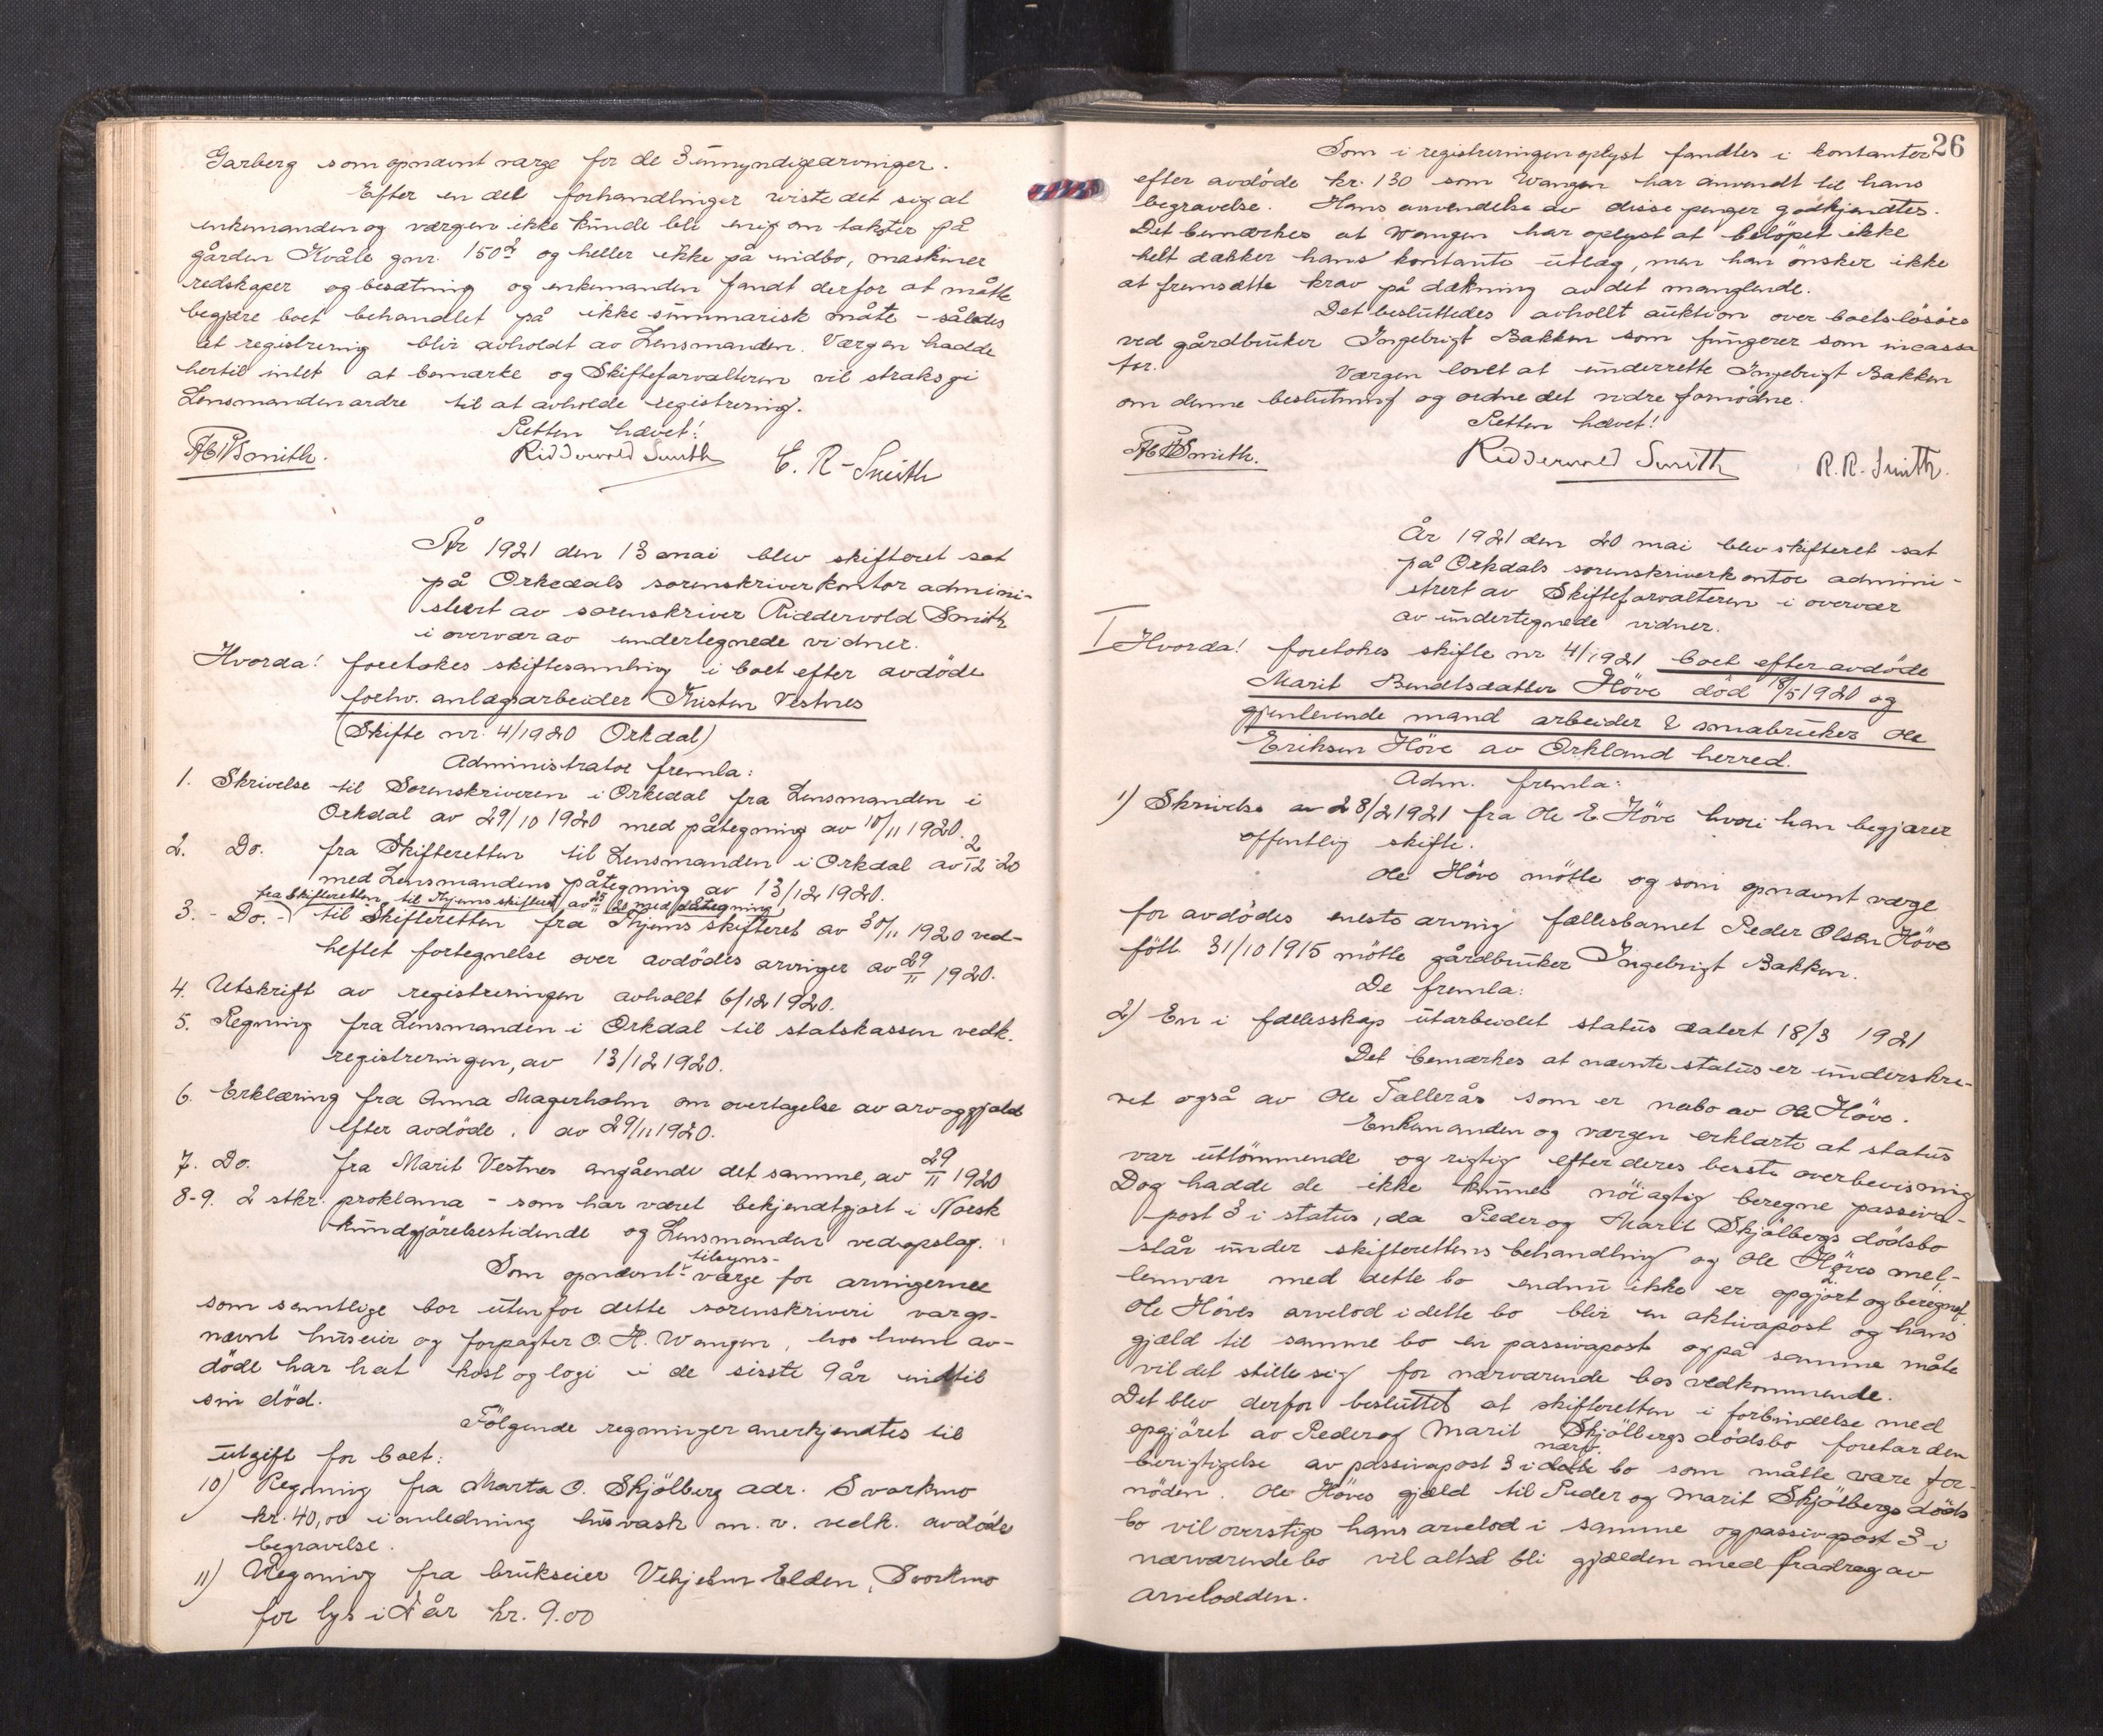 Garberg som opnævnt værge for de 3 umyndige arvinger.
Efter en del forhandlinger viste det sig at
enkemanden og værgen ikke kunde bli enig om takster på
gården Kvåle gnr. 150 og heller ikke på indbo, maskiner
redskaper og besætning og enkemanden fandt derfor at måtte
begjære boet behandlet på ikke summarisk måte - således
at registrering blir avholdt av Lensmanden. Værgen hadde
hertil intet at bemærke og Skifteforvalteren vil straks gi
Lensmanden ordre til at avholde registrering.
Retten hævet!
Smith. Ridderwold Smith E. R-Smith
År 1921 den 13 mai blev skifteret sat
på Orkedals sorenskriverkontor admini-
strert av sorenskriver Riddervold Smith
i overvær av undertegnede vidner.
Hvorda! foretokes skiftesamling i boet efter avdöde
forhv. anlægsarbeider Kristen Vestnes
(Skifte nr. 4/1920 Orkdal)
Administrator fremla:
1. Skrivelse til Sorenskriveren i Orkedal fra Lensmanden i
Orkdal av 29/10 1920 med påtegning av 10/11 1920.
2. Do. fra Skifteretten til Lensmanden i Orkdal av 2/12 20
med Lensmandens påtegning av 13/12 1920.
fra Skifteretten til Hjems skifteret av 25/11 20 med påtegning
3. - Do. - til Skifteretten fra Hjems skifteret av 30/11 1920 ved-
heftet fortegnelse over avdödes arvinger av 29/11 1920.
4. Utskrift av registreringen avhollt 6/12 1920.
5. Regning fra Lensmanden i Orkdal til statskassen vedk.
registreringen, av 13/12 1920.
6. Erklæring fra Anna Magerholm om overtagelse av arv og gjæld
efter avdöde. av 29/11 1920.
7. Do. fra Marit Vestnes angående det samme, av 29/11 1920
8-9. 2 stkr. proklama - som har været bekjendtgjort i Norsk
kundgjörelsestidende og Lensmanden ved opslag.
tilsyns-
Som opnævnt værge for arvingerne
som samtlige bor utenfor dette sorenskriveri
nævnt huseier og forpagter O. H. Wangen, hos hvem av-
döde har hat kost og logi i de sisste 9 år indtil
sin död.
Fölgende regninger anerkjendtes til
utgift for boet:
10) Regning fra Marta O. Skjölberg adr. Svorkmo
kr. 40,00 i anledning husvask m. v. vedk. avdödes
begravelse.
11) Regning fra brukseier Elden, Svorkmo
for lys i år kr. 9.00
26
Som i registreringen oplyst fandtes i kontanter
efter avdöde kr. 130 som Wangen har anvendt til hans
begravelse. Hans anvendelse av disse penger godkjendtes.
Det bemærkes at Wangen har oplyst at belöpet ikke
helt dækker hans kontante utlæg, men han önsker ikke
at fremsætte krav på dækning av det manglende.
Det besluttedes avhollt auktion over boets lösöre
ved gårdbruker Ingebrigt Bakken som fungerer som incassa
tor. Værgen lovet at underrette Ingebrigt Bakken
om denne beslutning og ordne det vidre fornödne.
Retten hævet!
Smith. Ridderwold Smith R. R. Smith.
År 1921 den 20 mai blev skifteret sat
på Orkdals sorenskriverkontor admini-
strert av Skifteforvalteren i overvær
av undertegnede vidner.
I Hvorda! foretokes skifte nr 4/1921 boet efter avdöde
Marit Bendtsdatter Höve död 18/5 1920 og
gjenlevende mand arbeider & småbruker Ole
Eriksen Höve av Orkland herred.
Adm. fremla:
1) Skrivelse av 28/2 1921 fra Ole E. Höve hvori han begjærer
offentlig skifte.
Ole Höve mötte og som opnævnt værge
for avdödes eneste arving fællesbarnet Peder Olsen Höve
född 31/10 1915 mötte gårdbruker Ingebrigt Bakken.
De fremla:
2) En i fællesskap utarbeidet status datert 18/3 1921
Det bemærkes at nævnte status er underskre-
vet også av Ole Fallerås som er nabo av Ole Höve.
Enkemanden og værgen erklærte at status
var uttömmende og rigtig efter deres besste overbevisning
Dog hadde de ikke kunnet nöiagtig beregne passiva-
post 3 i status, da Peder og Marit Skjölbergs dödsbo
står under skifterettens behandling og Ole Höves mel-
lemvær med dette bo endnu ikke er opgjort og beregnet.
Ole Höves arvelod i dette bo blir en aktivapost og hans
gjæld til samme bo en passivapost og på samme måte
vil det stille sig for nærværende bos vedkommende.
Det blev derfor besluttet at skifteretten i forbindelse med
opgjöret av Peder og Marit Skjölbergs dödsbo foretar den
nærv.
berigtigelse av passivapost 3 i dette bo som måtte være for-
nöden. Ole Höves gjæld til Peder og Marit Skjölbergs döds
bo vil overstige hans arvelod i samme og passivpost 3 i
nærværende bo vil altså bli gjælden med fradrag av
arvelodden.